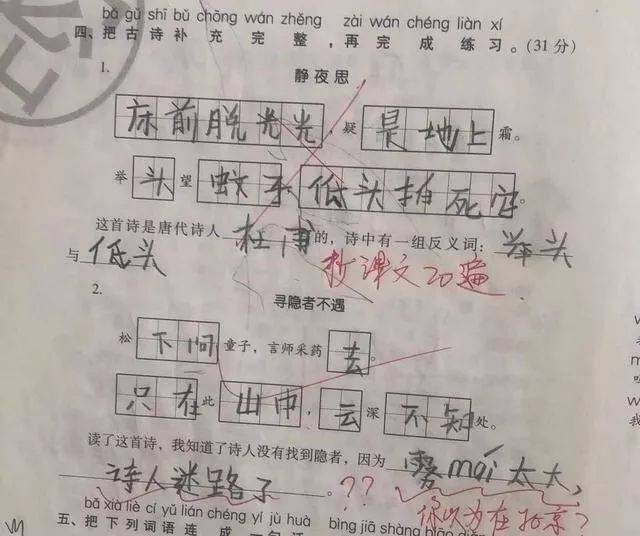 bǎ gǔ shī bǔ chōng wán zhěng zài wán chéng liàn xí
四、把古诗补充完整,再完成练习。(31分)
1.
静夜思
床前脱光光,疑是地上霜。
举头望蚊子低头拍死它。
这首诗是唐代诗人杜甫的,诗中有一组反义词:举头
与低头
抄课文20遍
2.
寻隐者不遇
松下问童子,言师采药去。
只在此山中,云深不知处。
读了这首诗,我知道了诗人没有找到隐者,因为雾mái太大,
诗人迷路了。??
你以为在北京?
bǎ xià liè cí yǔ lián chéng yí jù huà bìng jiā shàng biāo diǎn
五、把下列词语连成一句话